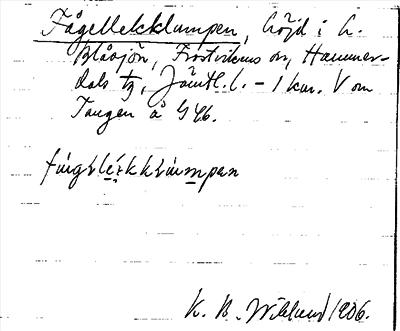 Fågellekklumpen, höjd i h.
Blåsjön, Frostvikens sn, Hammer-
dals tg, Jämtl. l. - 1 km. V om
Tangen å G Eb.
K. B. Wiklund 1906.